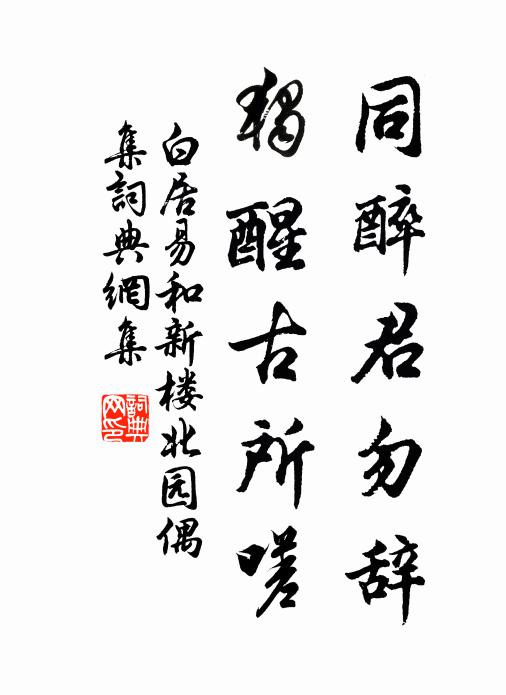 同醉君勿辞
獨醒古所嗟
白居易和新楼北园偶
集詞典網集
詞典
网印